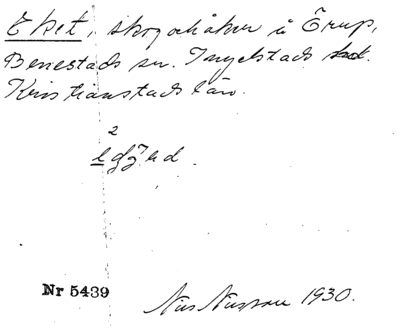 Eket, skog och åker å Örup,
Benestads sn. Ingelstads hd.
Kristianstads län.
2
Nr 5439
Nils Nilsson 1930.